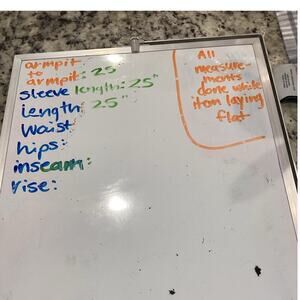 armpit
to
armpit: 25"
sleeve length: 25"
length: 25"
Waist:
hips:
inseam:
rise:
All
measure-
ments
done while
item laying
flat